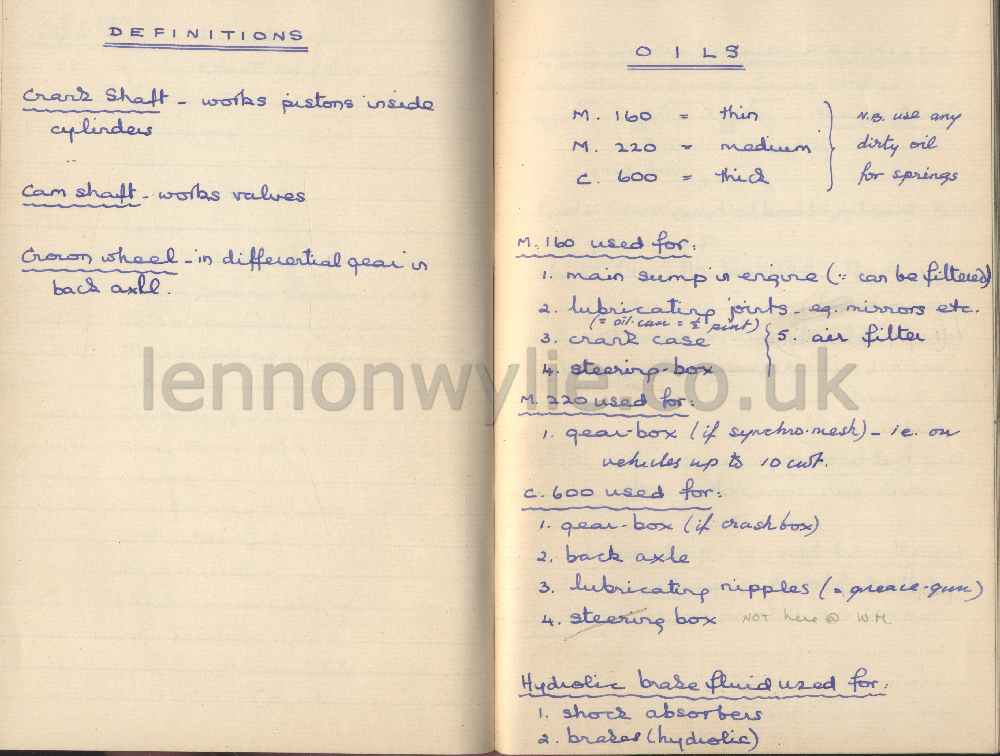 DEFINITIONS
Crank Shaft - works pistons inside
cylinders
Cam shaft - works valves
Crown wheel - in differential gear in
back axle.
OILS
M. 160 = thin
M. 220 = medium
C. 600 = thick
N.B. use any
dirty oil
for springs
M. 160 used for:
1. main sump in engine (∵ can be filtered)
2. lubricating joints - eg. mirrors etc.
(= oil-can = ½ pint)
3. crank case
5. air filter
4. steering-box
M. 220 used for:
1. gear-box (if synchro-mesh) - ie. on
vehicles up to 10 cwt.
C. 600 used for:
1. gear-box (if crashbox)
2. back axle
3. lubricating nipples (= grease-gun)
4. steering box NOT here @ W.M.
Hydrolic brake fluid used for:
1. shock absorbers
2. brakes (hydrolic)
lennonwylie.co.uk